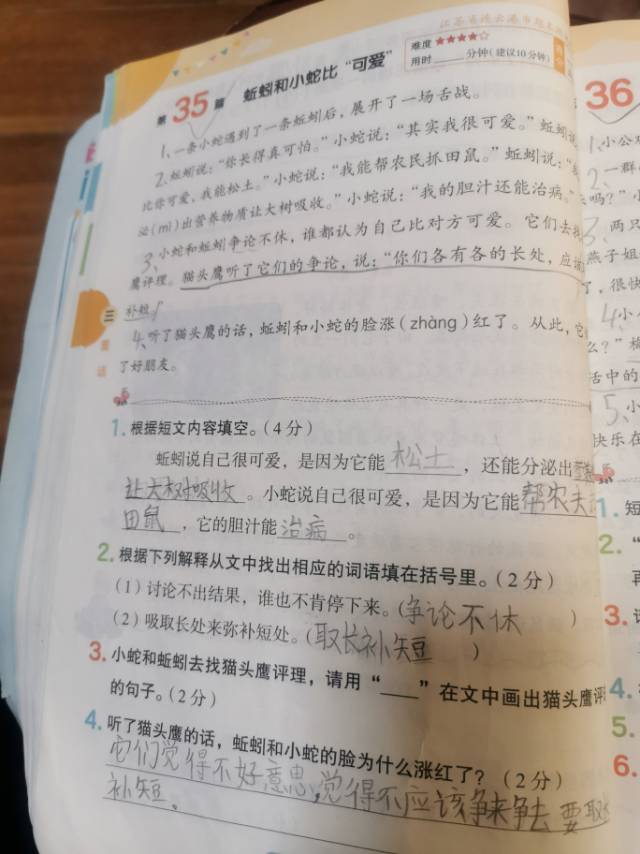 难度★★★★☆
用时____分钟(建议10分钟)
第35篇 蚯蚓和小蛇比“可爱”
1、一条小蛇遇到了一条蚯蚓后，展开了一场舌战。
2、蚯蚓说：“你长得真可怕。”小蛇说：“其实我很可爱。”蚯蚓
比你可爱，我能松土。”小蛇说：“我能帮农民抓田鼠。”蚯蚓说：“
泌(mì)出营养物质让大树吸收。”小蛇说：“我的胆汁还能治病。”
3、小蛇和蚯蚓争论不休，谁都认为自己比对方可爱。它们去找
鹰评理。猫头鹰听了它们的争论，说：“你们各有各的长处，应
补短
4、听了猫头鹰的话，蚯蚓和小蛇的脸涨(zhàng)红了。从此，它
了好朋友。
三
童话
1. 根据短文内容填空。(4分)
蚯蚓说自己很可爱，是因为它能松土，还能分泌出
让大树吸收。小蛇说自己很可爱，是因为它能帮农夫
田鼠，它的胆汁能治病。
2. 根据下列解释从文中找出相应的词语填在括号里。(2分)
(1)讨论不出结果，谁也不肯停下来。(争论不休)
(2)吸取长处来弥补短处。(取长补短)
3. 小蛇和蚯蚓去找猫头鹰评理，请用“____”在文中画出猫头鹰评
的句子。(2分)
4. 听了猫头鹰的话，蚯蚓和小蛇的脸为什么涨红了？(2分)
它们觉得不好意思，觉得不应该争来争去 要取
补短。
36
1、小公
2、一群
吗？”小
3、两只
燕子姐
了，很快
4、小
么？”
活中的
5、小
快乐在
1. 短
2. “
3.
4.
5.
6.